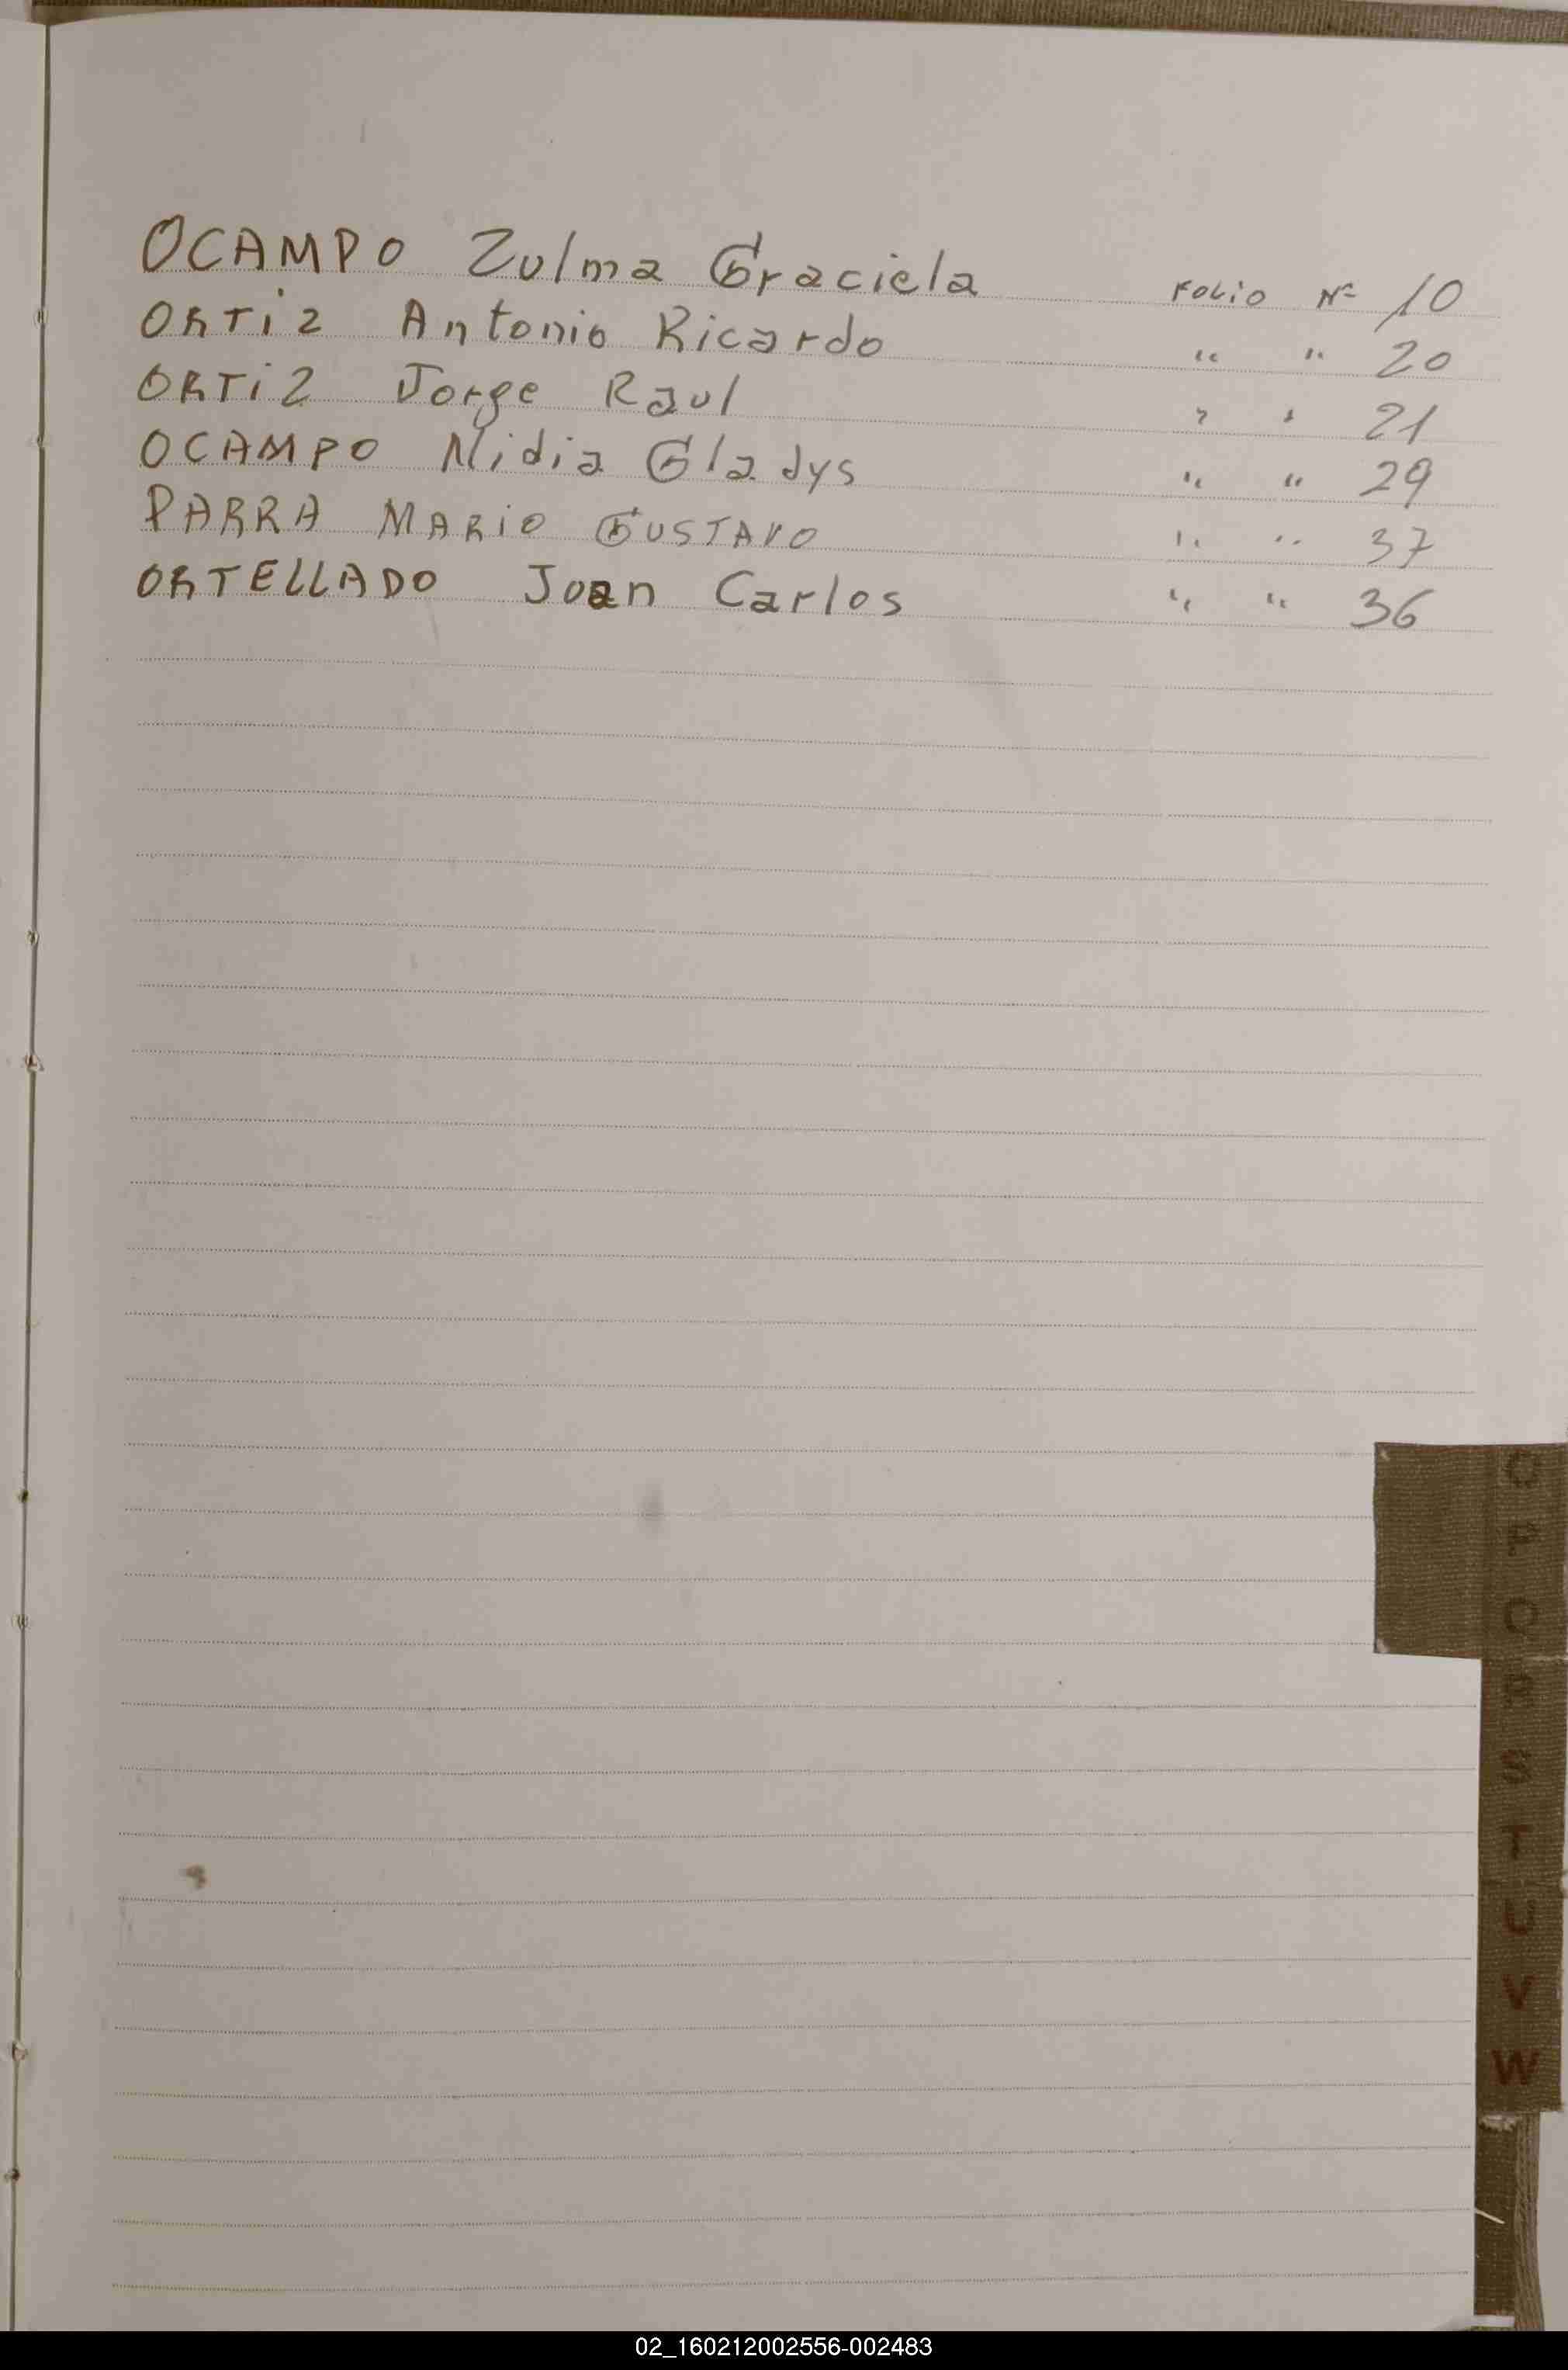 OCAMPO Zulma Graciela Folio Nº 10
ORTiZ Antonio Ricardo " " 20
ORTiZ Jorge Raul " " 21
OCAMPO Nidia Gladys " " 29
PARRA MARiO GUSTAVO " " 37
ORTELLADO Juan Carlos " " 36
O
P
Q
R
S
T
U
V
W
02_160212002556-002483